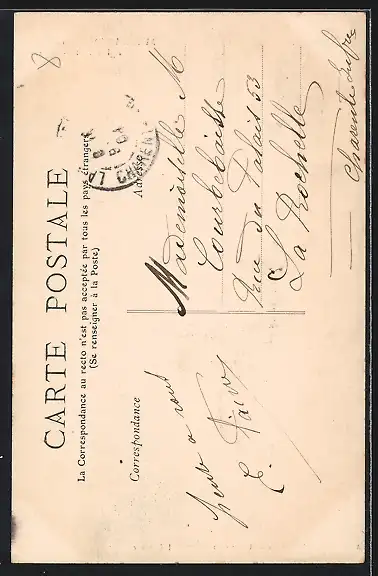 CARTE POSTALE
La Correspondance au recto n'est pas acceptée par tous les pays étrangers
(Se renseigner à la Poste)
Correspondance
Adresse
à vous
E.
Mademoiselle M
Courbebaisse
Rue du Palais 53
La Rochelle
Charente Infre